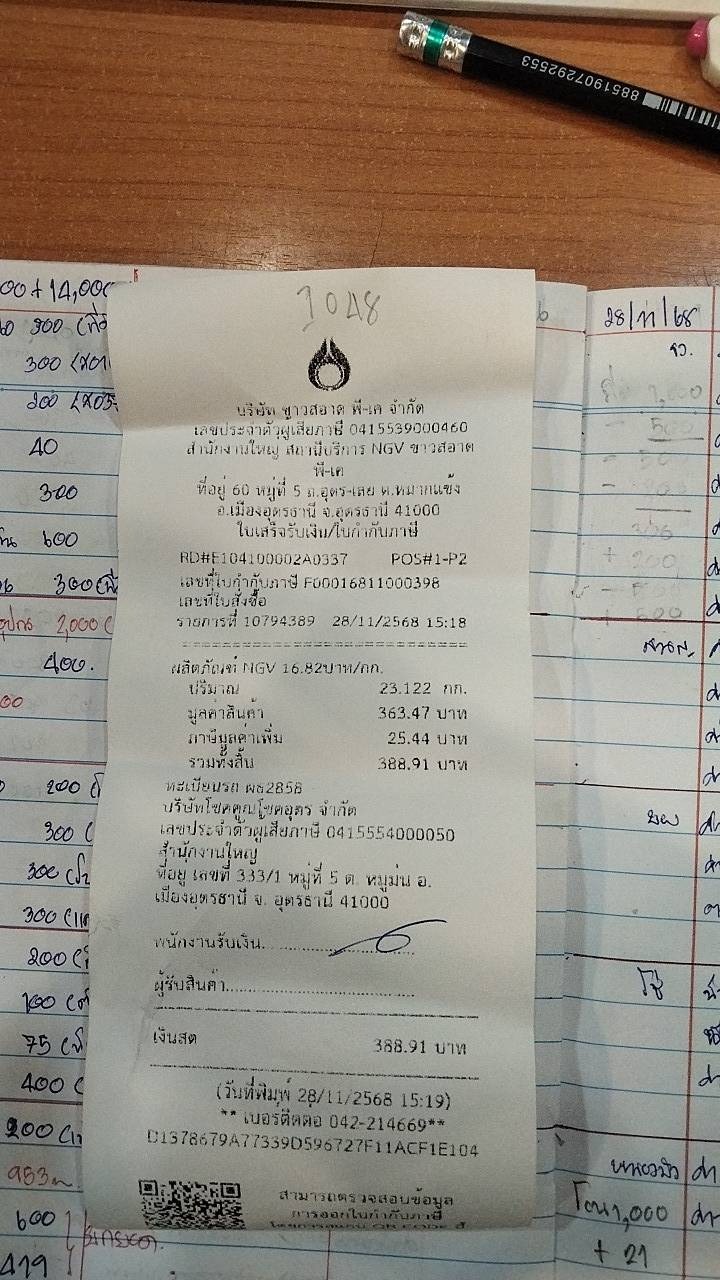 8851907292553
1048
บริษัท ขาวสอาด พี-เค จำกัด
เลขประจำตัวผู้เสียภาษี 0415539000460
สำนักงานใหญ่ สถานีบริการ NGV ขาวสอาด
พี-เค
ที่อยู่ 60 หมู่ที่ 5 ถ.อุดร-เลย ต.หมากแข้ง
อ.เมืองอุดรธานี จ.อุดรธานี 41000
ใบเสร็จรับเงิน/ใบกำกับภาษี
RD#E104100002A0337 POS#1-P2
เลขที่ใบกำกับภาษี F00016811000398
เลขที่ใบสั่งซื้อ
รายการที่ 10794389 28/11/2568 15:18
ผลิตภัณฑ์ NGV 16.82บาท/กก.
ปริมาณ 23.122 กก.
มูลค่าสินค้า 363.47 บาท
ภาษีมูลค่าเพิ่ม 25.44 บาท
รวมทั้งสิ้น 388.91 บาท
ทะเบียนรถ ผธ2858
บริษัทโชคคูณโชคอุดร จำกัด
เลขประจำตัวผู้เสียภาษี 0415554000050
สำนักงานใหญ่
ที่อยู่ เลขที่ 333/1 หมู่ที่ 5 ต. หมูม่น อ.
เมืองอุดรธานี จ. อุดรธานี 41000
พนักงานรับเงิน
ผู้รับสินค้า
เงินสด 388.91 บาท
(วันที่พิมพ์ 28/11/2568 15:19)
** เบอร์ติดต่อ 042-214669**
D1378679A77339D596727F11ACF1E104
สามารถตรวจสอบข้อมูล
การออกใบกำกับภาษี
00+14,000
300
300
200
40
300
600
300
2,000
400.
200
300
300
300
200
100
75
400
200
953
600
419
28/11/68
จว.
1,000
500
200
โอน1,000
+ 21